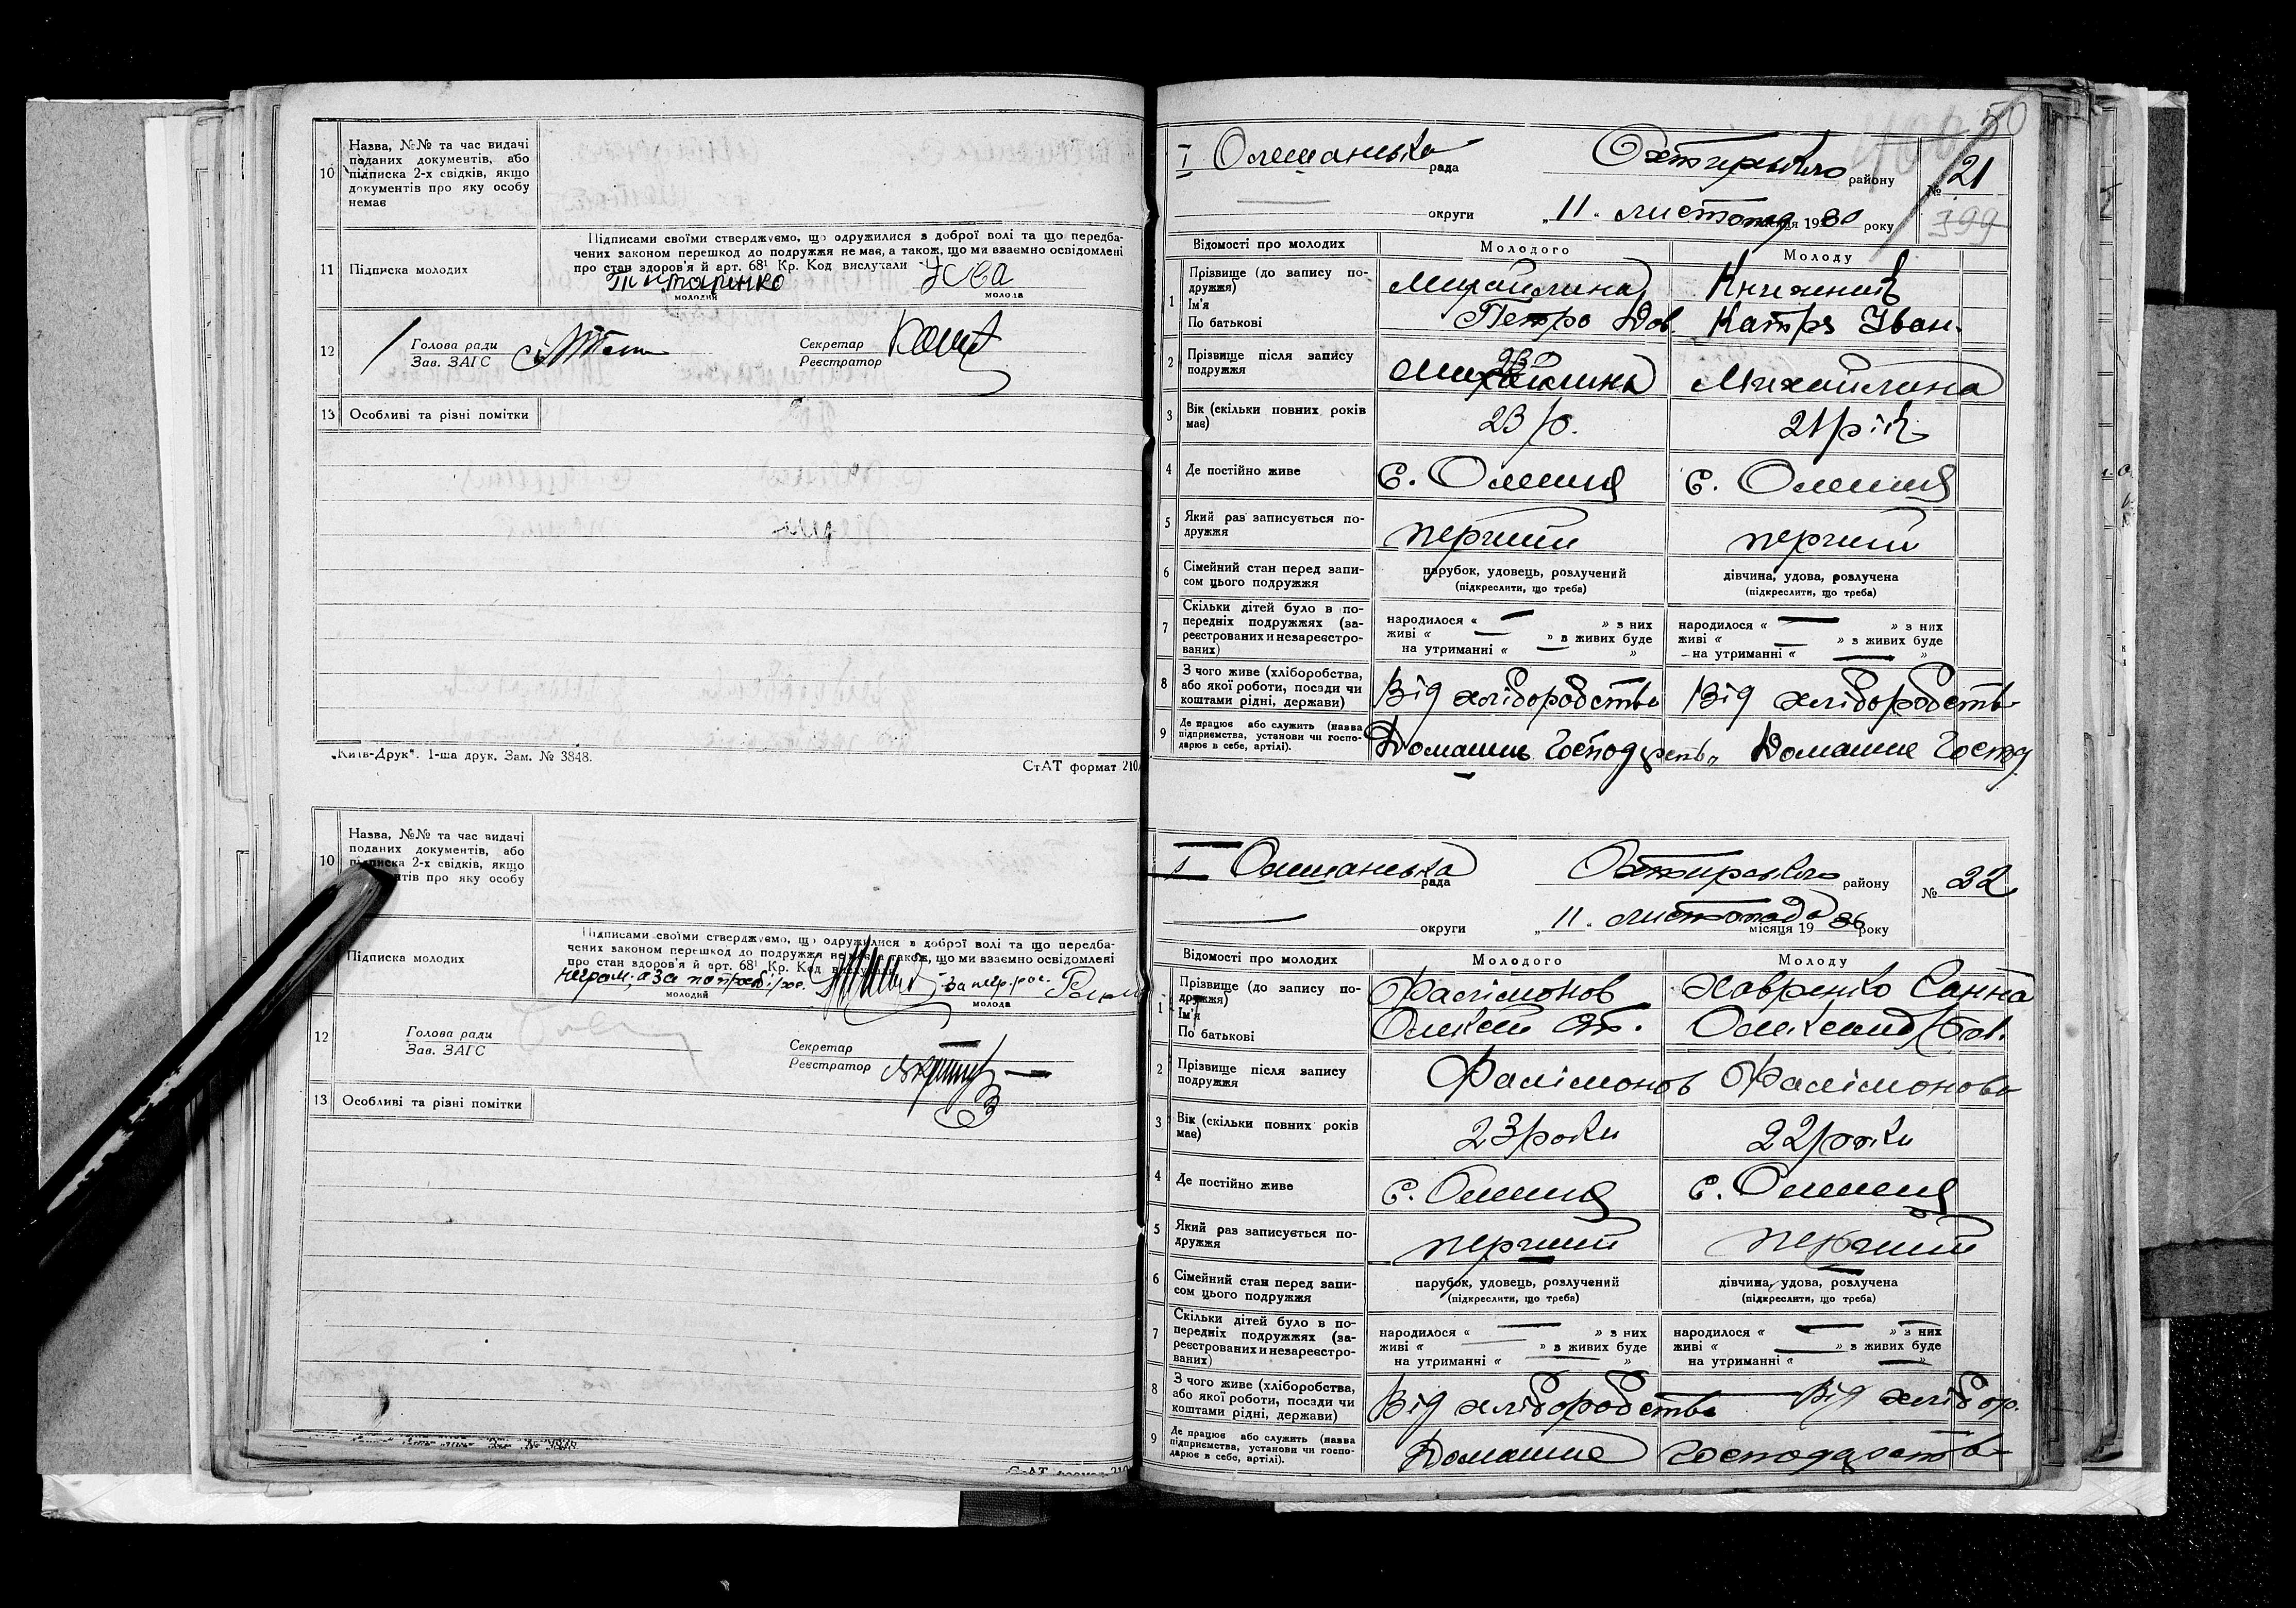 10
Назва, №№ та час видачі
поданих документів, або
підписка 2-х свідків, якщо
документів про яку особу
немає
Підписами своїми стверджуємо, що одружилися з доброї волі та що передба-
чених законом перешкод до подружжя немає, а також, що ми взаємно освідомлені
про стан здоров'я й арт. 68¹ Кр. Код вислухали
11
Підписка молодих
молодий
молода
12
Голова ради
Зав. ЗАГС
Секретар
Реєстратор
13
Особливі та різні помітки
„Київ-Друк“. 1-ша друк. Зам. № 3848.
СтАТ формат 210
10
Назва, №№ та час видачі
поданих документів, або
підписка 2-х свідків, якщо
нтів про яку особу
Підписами своїми стверджуємо, що одружилися з доброї волі та що передба-
чених законом перешкод до подружжя немає, а також, що ми взаємно освідомлені
про стан здоров'я й арт. 68¹ Кр. Код вислухали
Підписка молодих
молодий
молода
12
Голова ради
Зав. ЗАГС
Секретар
Реєстратор
13
Особливі та різні помітки
50
I Олешанська рада Охтирського району № 21
округи „11“ листопад місяця 1930 року
399
Відомості про молодих
Молодого
Молоду
1
Прізвище (до запису по-
дружжя)
Ім'я
По батькові
Михайлина
Петро Дов.
Книженик
Катря Іван.
2
Прізвище після запису
подружжя
Михайлина
Михайлина
3
Вік (скільки повних років
має)
23 р.
21 рік
4
Де постійно живе
с. Олешня
с. Олешня
5
Який раз записується по-
дружжя
перший
перший
6
Сімейний стан перед запи-
сом цього подружжя
парубок, удовець, розлучений
(підкреслити, що треба)
дівчина, удова, розлучена
(підкреслити, що треба)
7
Скільки дітей було в по-
передніх подружжях (за-
реєстрованих и незареєстро-
ваних)
народилося « — » з них
живі « — » з живих буде
на утриманні « — »
народилося « — » з них
живі « — » з живих буде
на утриманні « — »
8
З чого живе (хліборобства,
або якої роботи, посади чи
коштами рідні, держави)
Від хліборобства
Від хліборобств
9
Де працює або служить (назва
підприємства, установи чи госпо-
дарює в себе, артілі).
Домашнє
Домашнє Господ
I Олешанська рада Охтирського району № 22
округи „11“ листопада місяця 1930 року
Відомості про молодих
Молодого
Молоду
1
Прізвище (до запису по-
дружжя)
Ім'я
По батькові
Фалімонов
Олексій
Хавренко Ганна
2
Прізвище після запису
подружжя
Фалімонов
Фалімонова
3
Вік (скільки повних років
має)
23 роки
22 роки
4
Де постійно живе
с. Олешня
с. Олешня
5
Який раз записується по-
дружжя
перший
перший
6
Сімейний стан перед запи-
сом цього подружжя
парубок, удовець, розлучений
(підкреслити, що треба)
дівчина, удова, розлучена
(підкреслити, що треба)
7
Скільки дітей було в по-
передніх подружжях (за-
реєстрованих и незареєстро-
ваних)
народилося « — » з них
живі « — » з живих буде
на утриманні « »
народилося « — » з них
живі « — » з живих буде
на утриманні « — »
8
З чого живе (хліборобства,
або якої роботи, посади чи
коштами рідні, держави)
Від хліборобства
Від хлібор.
9
Де працює або служить (назва
підприємства, установи чи госпо-
дарює в себе, артілі).
Домашнє господарств